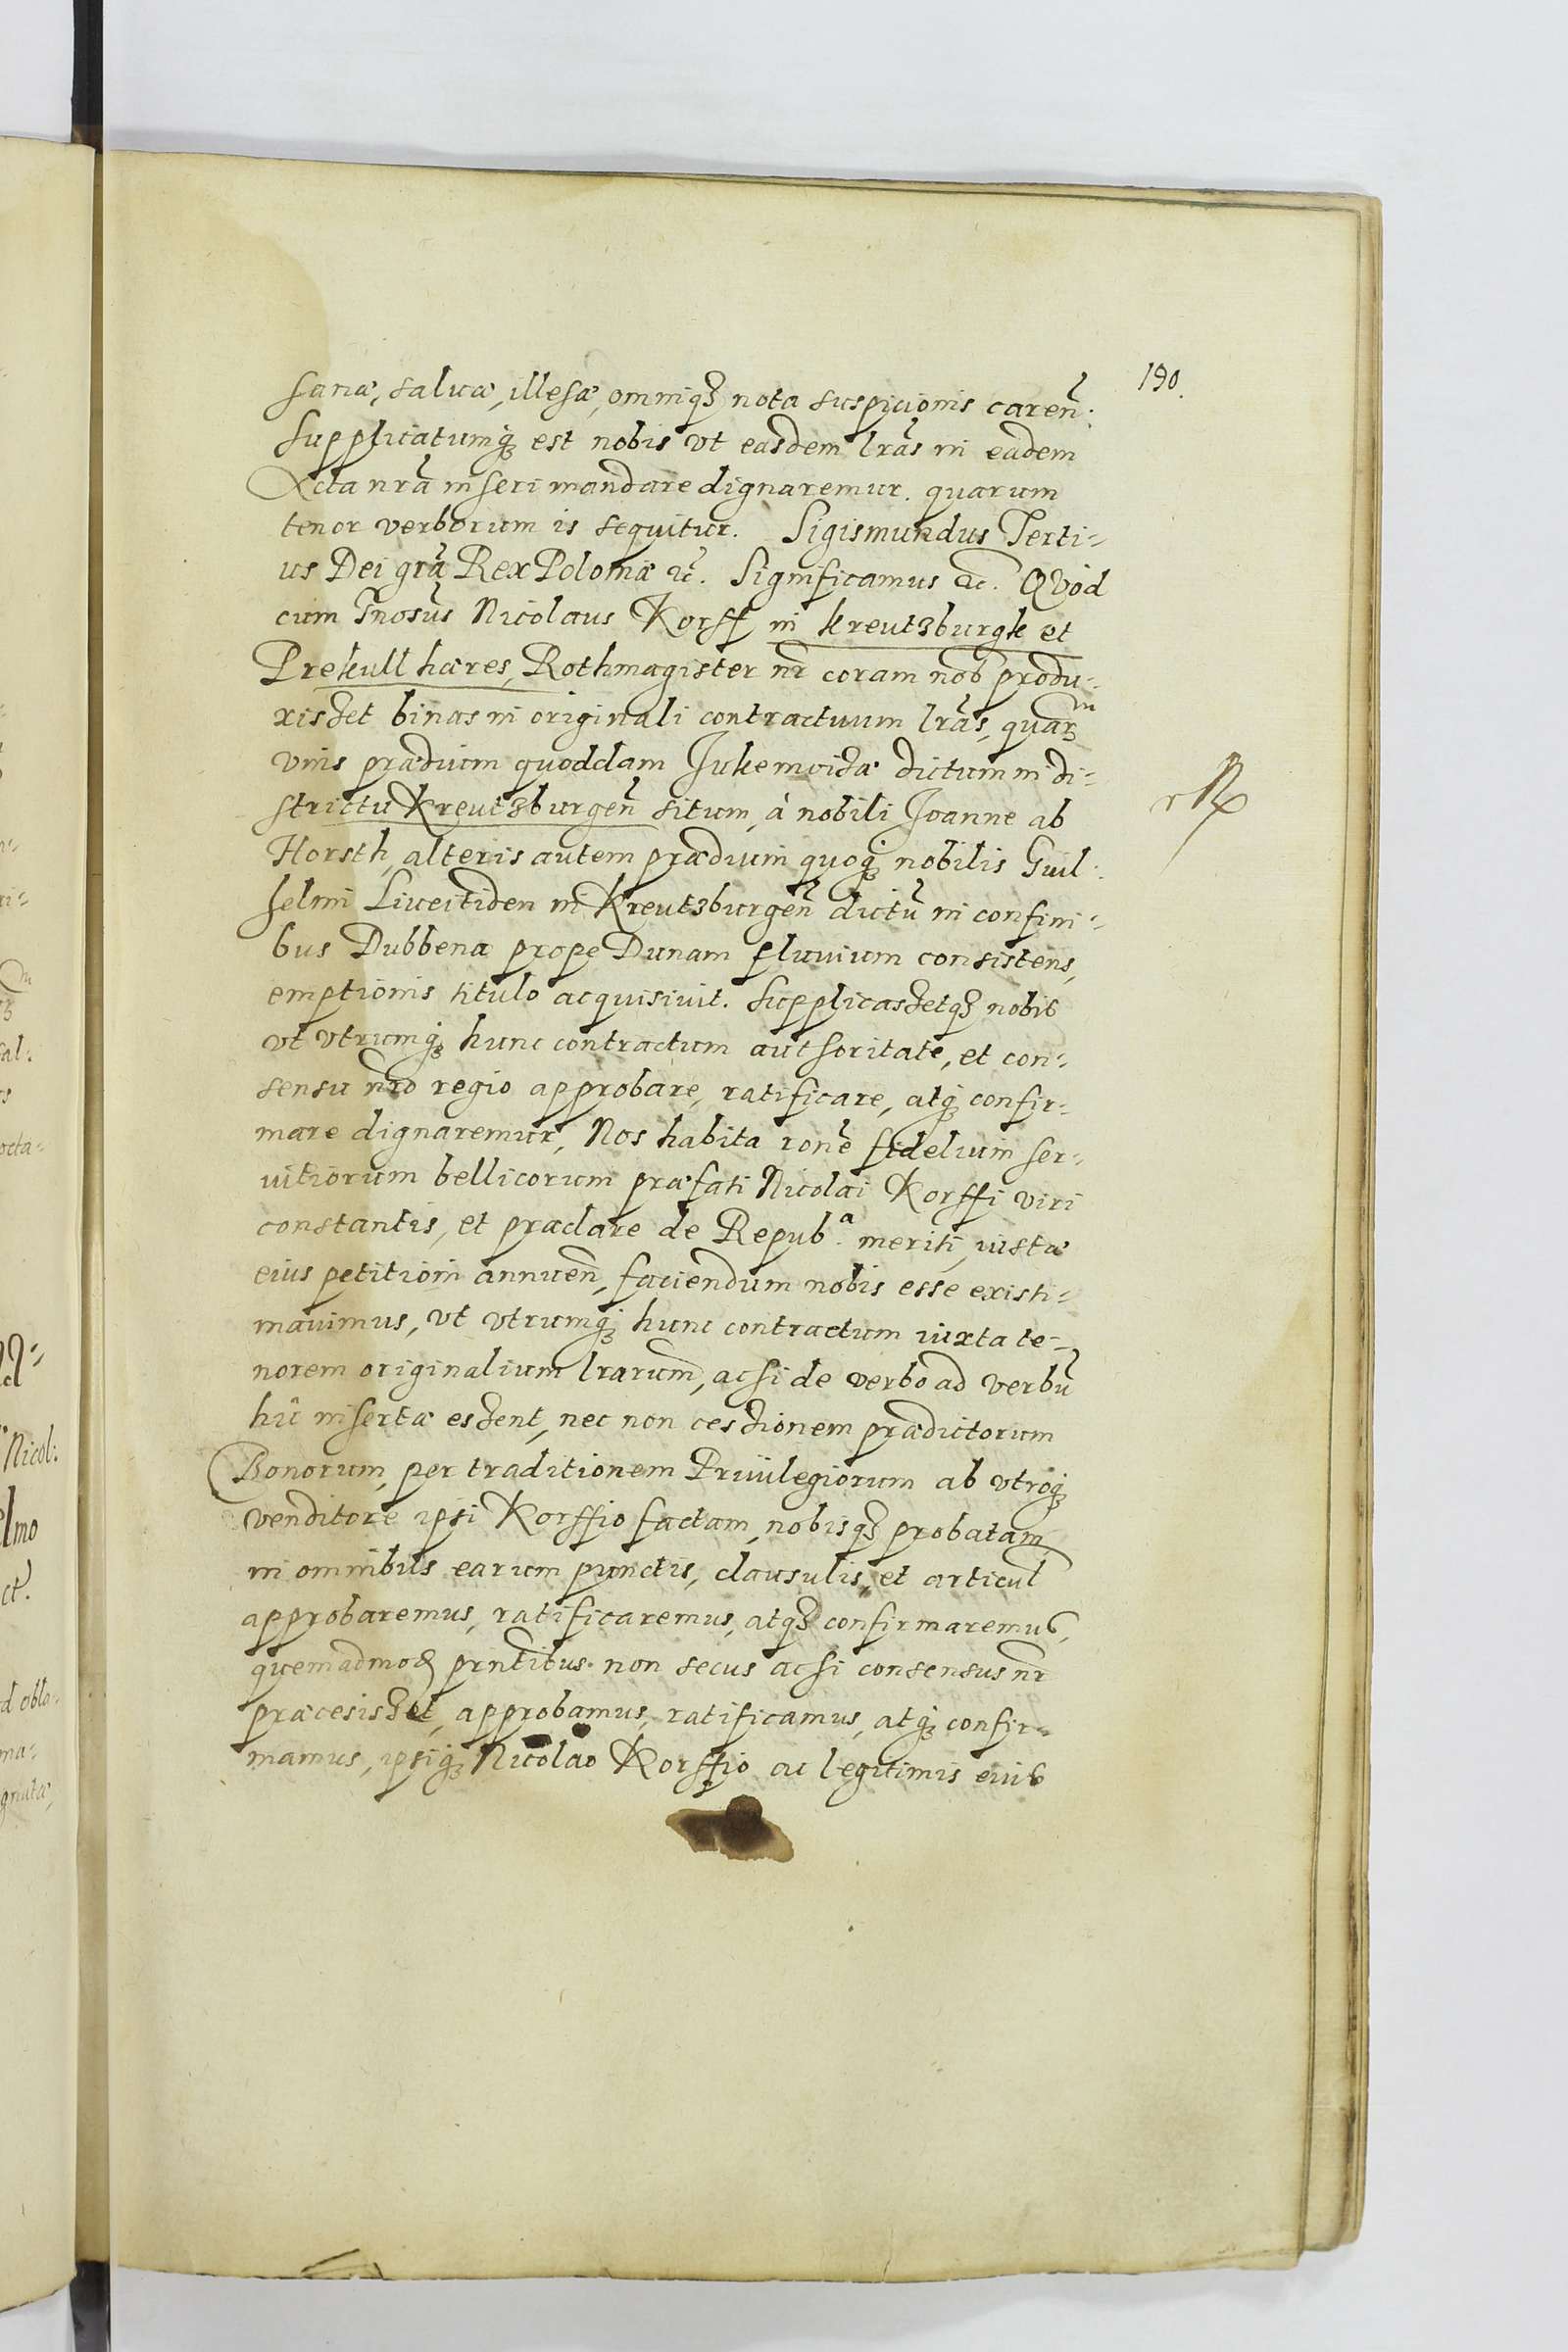 190.
sanæ, saluæ, illesæ, omniq3 nota suspicionis careñ.
Supplicatumq3 est nobis vt easdem lr̃as in eadem
Acta nr̃a inseri mandare dignaremur. quarum
tenor verborum is sequitur. Sigismundus Terti-
us Dei gr̃a Rex Poloniæ &c. Significamus &c. Qvod
cum Gnosus Nicolaus Korff in Kreutzburgk et
Prekull hæres, Rothmagister nr̃ coram nob produ-
xisset binas in originali contractuum lr̃as, quarum
vnis prædium quoddam Jukemoisa dictum in di-
strictu Kreutzburgeñ situm, à nobili Joanne ab
Horsth, alteris autem prædium quoq3 nobilis Guil-
helmi Liueitiden in Kreutzburgeñ dictũ in confini-
bus Dubbena prope Dunam fluuium consistens,
emptionis titulo acquisiuit. Supplicassetq3 nobis
vt vtrumq3 hunc contractum authoritate, et con-
sensu nr̃o regio approbare, ratificare, atq3 confir-
mare dignaremur, Nos habita rone fidelium ser-
uitiorum bellicorum præfati Nicolai Korffi viri
constantis, et præclare de Repub.ª meriti, iustæ
eius petitioni annueñ, faciendum nobis esse existi-
mauimus, vt vtrumq3 hunc contractum iuxta te-
norem originalium lrarum, acsi de verbo ad verbũ
hîc insertæ essent, nec non cessionem prædictorum
Bonorum, per traditionem Priuilegiorum ab vtroq3
venditore ipsi Korffio factam, nobisq3 probatam
in omnibus earum punctis, clausulis, et articul
approbaremus, ratificaremus, atq3 confirmaremus,
quemadmod prntibus non secus acsi consensus nr̃
præcesisset, approbamus, ratificamus, atq3 confir-
mamus, ipsiq3 Nicolao Korffio ac legitimis eius